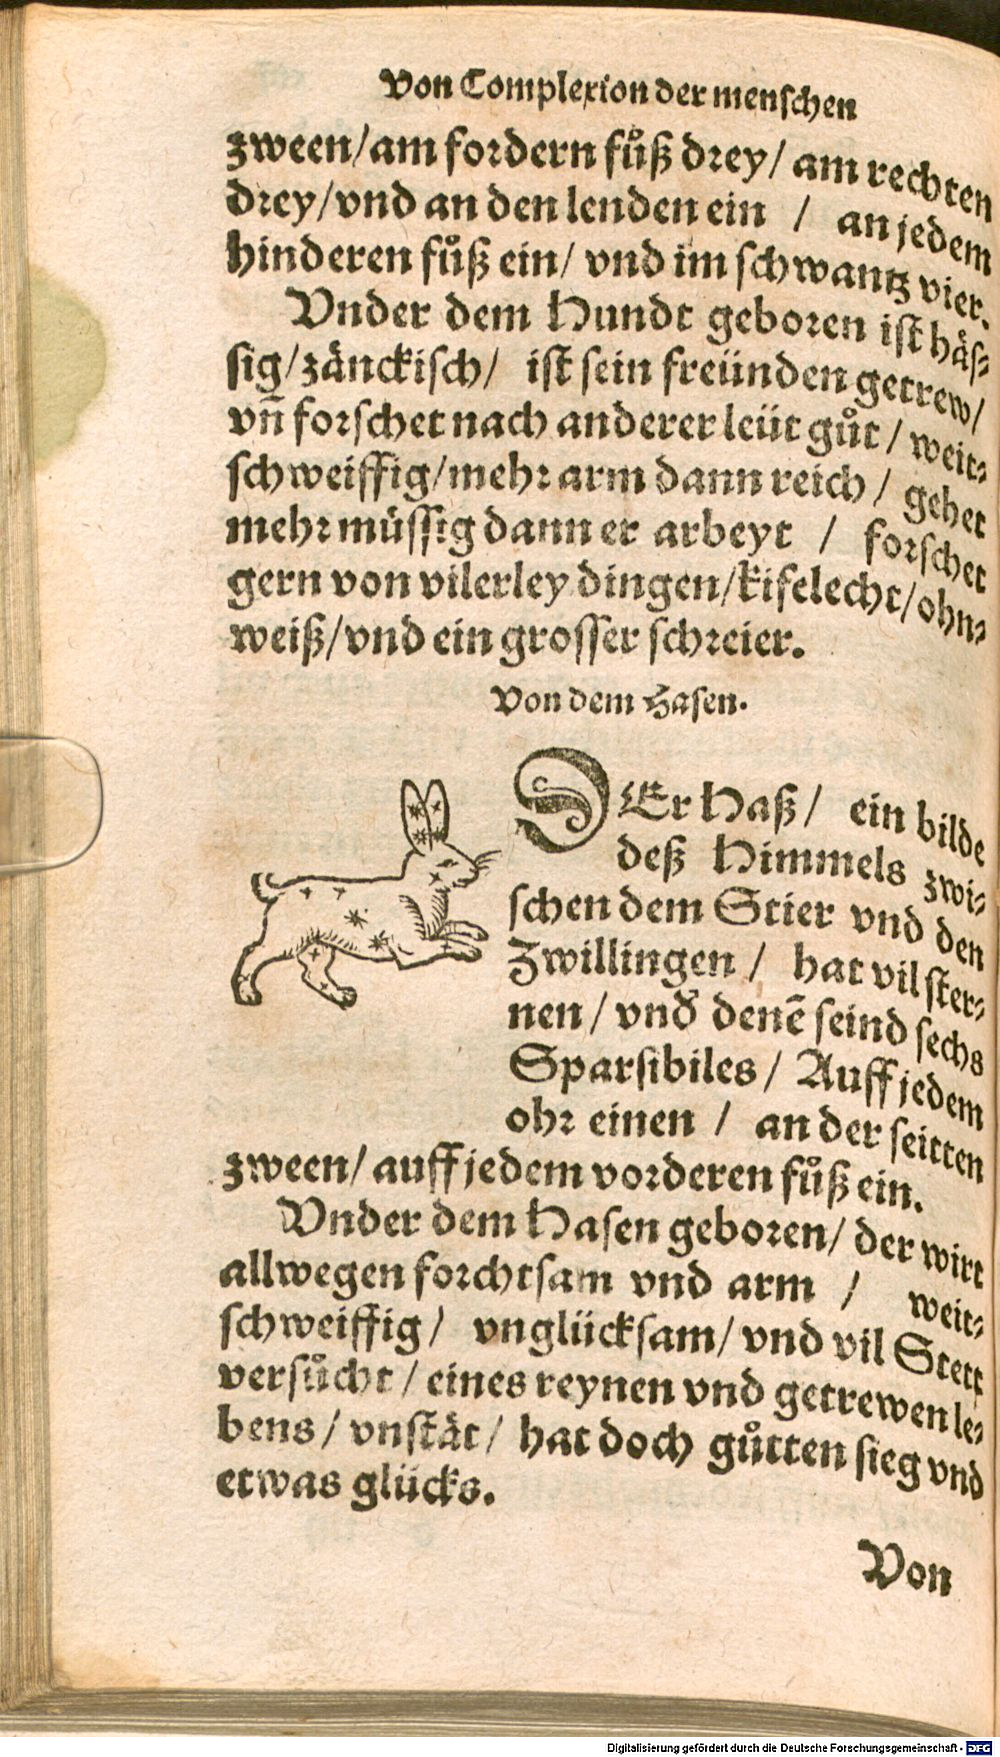 Von Complexion der menschen
zween/am fordern fůß drey/ am rechten
drey/vnd an den lenden ein / an jedem
hinderen fůß ein/ vnd im schwantz vier.
Vnder dem Hundt geboren ist häs⸗
sig/zänckisch/ ist sein freünden getrew/
vñ forschet nach anderer leüt gůt / weit⸗
schweiffig/mehr arm dann reich / gehet
mehr müssig dann er arbeyt / forschet
gern von vilerley dingen/kifelecht/ohn⸗
weiß/vnd ein grosser schreier.
Von dem Hasen.
DEr Haß/ ein bilde
deß Himmels zwi⸗
schen dem Stier vnd den
Zwillingen / hat vil ster⸗
nen / vnd̕ denẽ seind sechs
Sparsibiles / Auff jedem
ohr einen / an der seitten
zween/ auff jedem vorderen fůß ein.
Vnder dem Hasen geboren/ der wirt
allwegen forchtsam vnd arm / weit⸗
schweiffig/ vnglücksam/ vnd vil Stett
versůcht / eines reynen vnd getrewen le⸗
bens / vnstät / hat doch gůtten sieg vnd
etwas glücks.
Von
Digitalisierung gefördert durch die Deutsche Forschungsgemeinschaft - DFG